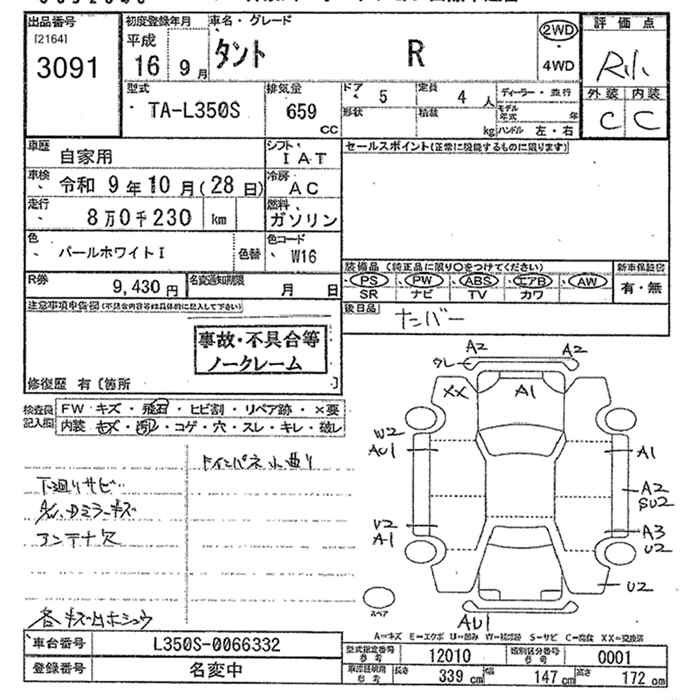 出品番号
[2164]
3091
初度登録年月
平成
16 9月
車名・グレード
タント R
2WD
4WD
評価点
R小
外装 内装
C C
型式
TA-L350S
排気量
659
CC
ドア 5
定員 4人
形状
積載 kg
ディーラー・並行
モデル年式 年
ハンドル 左・右
車歴
自家用
シフト
IAT
車検
令和 9年10月(28日)
冷房
AC
走行
8万0千230 km
燃料
ガソリン
色
パールホワイトI
色替
色コード
W16
R券
9,430円
名変通知期限
月 日
セールスポイント(正常に機能するものに限ります)
装備品 (純正品に限り○をつけてください)
PS PW ABS エアB AW
SR ナビ TV カワ
新車保証書
有・無
後日品
ナンバー
注意事項申告欄(不具合内容等は具体的に記入して下さい)
事故・不具合等
ノークレーム
修復歴 有〔箇所 〕
検査員記入欄
FW キズ・飛石・ヒビ割・リペア跡・×要
内装 キズ・汚れ・コゲ・穴・スレ・キレ・破レ
ドインパネ小曲り
下廻りサビ
Dミラーキズ
アンテナ欠
A2 A2
XX A1
W2
AU1
A1
A2
SU2
U2
A1
A3
U2
U2
スペア
AU1
A=キズ E=エクボ U=凹み W=補修跡 S=サビ C=腐食 XX=交換済
車台番号 L350S-0066332
登録番号 名変中
型式指定番号 参考 12010
類別区分番号 参考 0001
長さ 339cm 幅 147cm 高さ 172cm